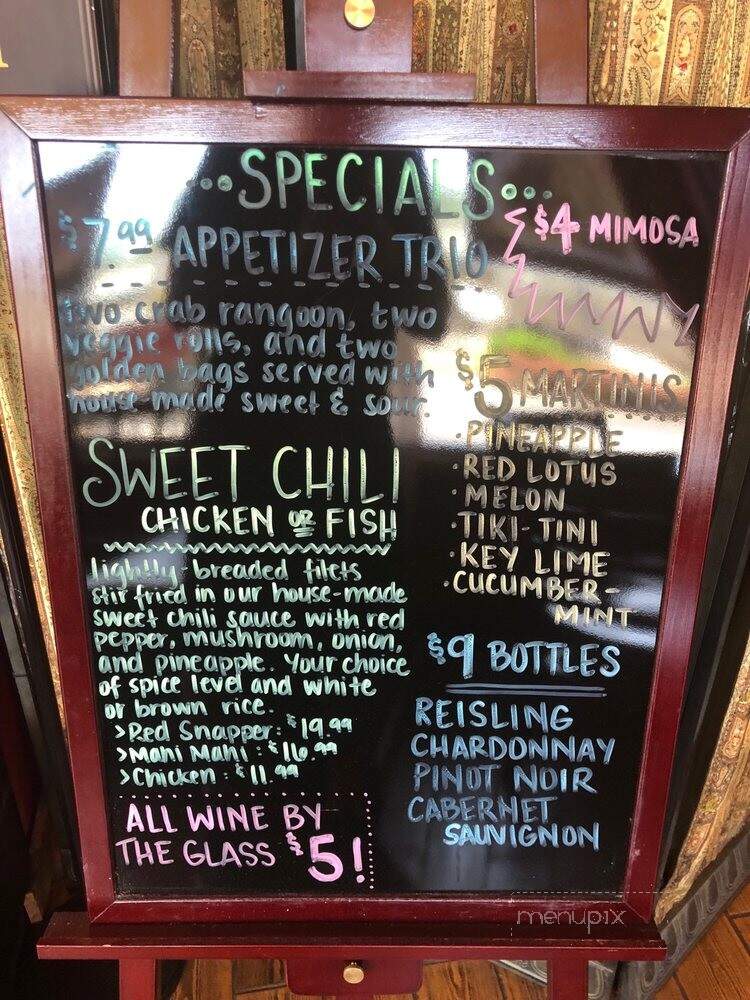 ...SPECIALS...
$7.99 APPETIZER TRIO
two crab rangoon, two
veggie rolls, and two
golden bags served with
house-made sweet & sour.
SWEET CHILI
CHICKEN OR FISH
lightly-breaded filets
stir fried in our house-made
sweet chili sauce with red
pepper, mushroom, onion,
and pineapple. Your choice
of spice level and white
or brown rice.
>Red Snapper: $19.99
>Mahi Mahi: $16.99
>Chicken: $11.99
ALL WINE BY
THE GLASS $5!
$4 MIMOSA
$5 MARTINIS
·PINEAPPLE
·RED LOTUS
·MELON
·TIKI-TINI
·KEY LIME
·CUCUMBER-
MINT
$9 BOTTLES
REISLING
CHARDONNAY
PINOT NOIR
CABERNET
SAUVIGNON
menupix